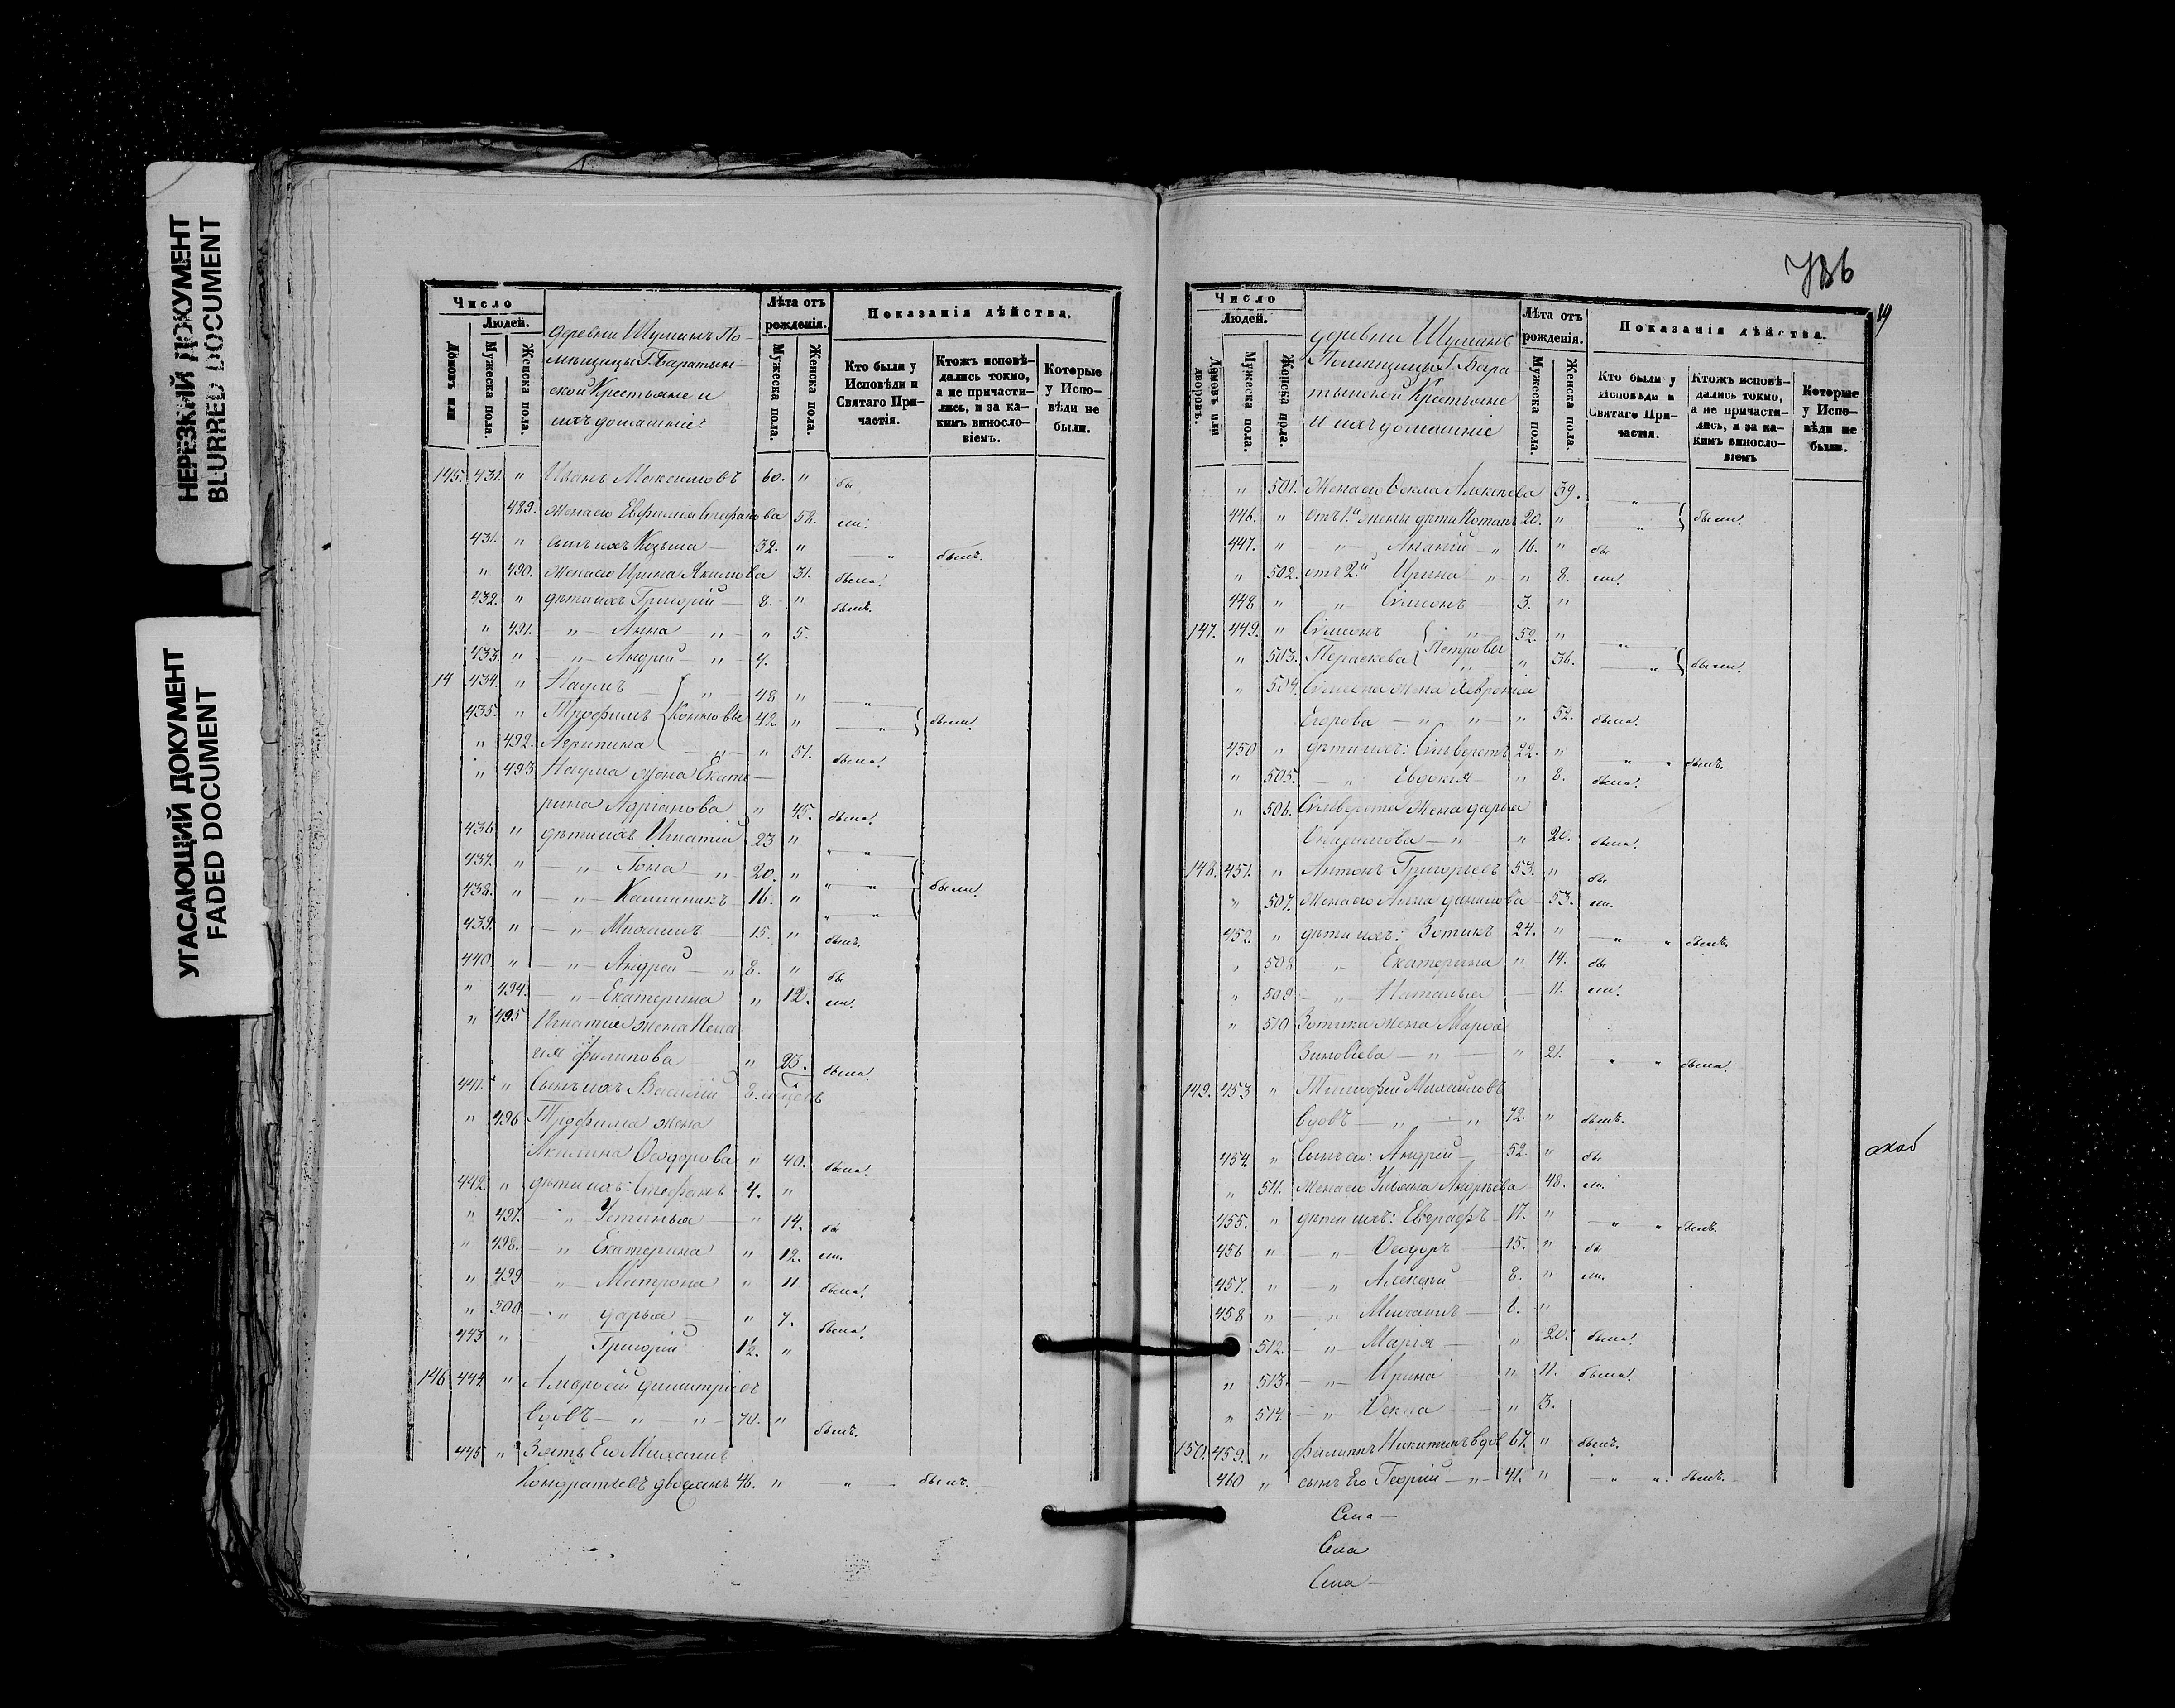 НЕРЕЗКИЙ ДОКУМЕНТ
BLURRED DOCUMENT
УГАСАЮЩИЙ ДОКУМЕНТ
FADED DOCUMENT
Число
Людей.
Домовъ или
Мужеска пола.
Женска пола.
деревни Шуминъ По-
мѣщицы Г. Баратын-
ской Крестьяне и
ихъ домашніе:
Лѣта отъ рожденія.
Мужеска пола.
Женска пола.
Показанія дѣйства.
Кто были у Исповѣди и Святаго Причастія.
Ктожъ исповѣ-дались токмо, а не причасти-лись, и за ка-кимъ винословіемъ.
Которые у Испо-вѣди не были.
145. 431. " Иванъ Максимовъ 60. " бы
489. Жена его Евфимія Стефанова 58. ли.
431. " сынъ ихъ Козьма 32. " — " былъ.
" 490. Жена его Ирина Якимова 31. была.
432. " дѣти ихъ Григорій — 8. " былъ.
" 491. " — Анна — " — " 5.
433. " — " — Андрей — " 4.
14 434. " Наумъ — " — 48 " — "
435. " Трофимъ Кононовы 42. " — " были.
" 492. Агрипина — " — " 51. была.
" 493 Наума жена Екате-
рина Адріанова " 45. была.
436 " дѣти ихъ Игнатій 23 " " "
437. " — " — Іона — " 20. " " "
438. " — " — Калиникъ — 16. " " " были.
439. " — " Михаилъ 15. " былъ.
440 " — " — Андрей — " 8. " бы
" 494. — " — Екатерина " 12. ли.
" 495 Игнатія жена Пела
гія Филипова " 23. была.
441. " Сынъ ихъ Василій 8. мцовъ
" 496 Трофима жена
Акилина Ѳеодорова " 40. была.
442. " дѣти ихъ: Стефанъ 4. "
" 497. — " Устинья — " 14. бы
" 498. — " Екатерина " 12. ли.
" 499 — " — Матрона " 11 была.
" 500 — " дарья — " 7. была.
443 " Григорій 1/2. "
146 444 " Амарѳій димитріевъ
вдовъ — " — " — 70. " былъ.
445 " Зять Его Михаилъ
Кондратьевъ двоеженъ 46. " — " — былъ.
736
19
Число
Людей.
Домовъ или дворовъ.
Мужеска пола.
Женска пола.
деревни Шуминъ
Помѣщицы Г. Бара
тынской Крестьяне
и ихъ домашніе
Лѣта отъ рожденія.
Мужеска пола.
Женска пола.
Показанія дѣйства.
Кто были у Исповѣди и Святаго При-частія.
Ктожъ исповѣ-дались токмо, а не причасти-лись, и за ка-кимъ винословіемъ
Которые у Испо-вѣди не были.
" 501. Жена его Ѳекла Алексѣева 39. — " —
446. " отъ 1.й жены дѣти Потапъ 20. " — " были.
447. " — " — Ананій — " 16. " бы
" 502. отъ 2.й Ирина — " — " 8. ли.
448 " — " — Сѵмеонъ — 3. "
147. 449. " Сѵмеонъ — " — 52. " — "
" 503. Параскева Петровы " 36. — " были.
" 504. Сѵмеона жена Хавронія
Егорова — " — " — " 52. была.
450 " дѣти ихъ: Сильверстъ 22. " — " " былъ.
" 505. — " Евдокія — " 8. была.
" 506. Сильверста жена дарья
" 20. была.
148. 451. " Антонъ Григорьевъ 53. " бы
" 507. Жена его Анна данилова — 53. ли.
452. " дѣти ихъ: Зотикъ 24. " — " " былъ.
" 508. — " Екатерина " 14. бы
" 509 — " Наталья — 11. ли.
" 510 Зотика жена Марѳа
Зиновіева — " — " 21. — " " была.
149. 453 " Тимофей Михайловъ
вдовъ — " — " 72. " былъ.
454. " Сынъ его: Андрей — 52. " бы
" 511. Жена его Уліяна Андреева — 48. ли.
455. " дѣти ихъ: Евграфъ 17. " — " " былъ.
456 " — " Ѳеодоръ — 15. " бы
457. " — " Алексѣй — 8. " ли.
458 " — " Михаилъ — 6. "
512. — " Марія — " 20. была.
" 513. — " Ирина " 11. была.
" 514. — " Ѳекла — " 3.
150. 459. " Филиппъ Никитинъ вдов 67. " былъ.
460 " сынъ Его Георгій — " 41. " — " ". былъ.
Села —
Села
Села —